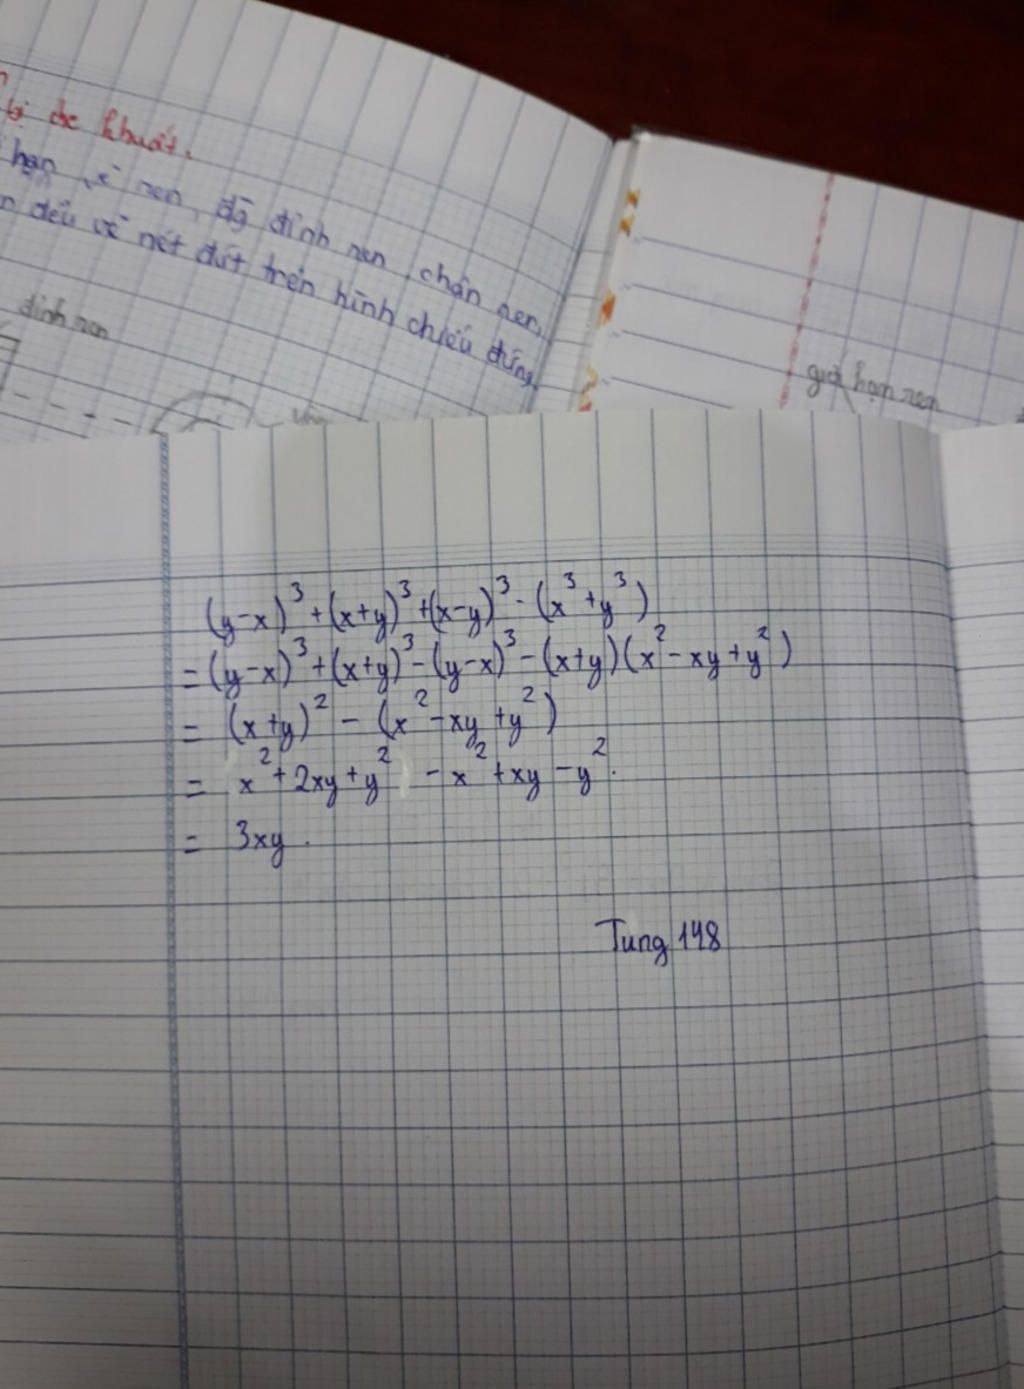 bị che khuất.
hạn ren, đg đỉnh ren, chân ren,
đều vẽ nét đứt trên hình chiếu đứng.
đỉnh ren
giới hạn ren
(y-x)³+(x+y)³+(x-y)³-(x³+y³)
=(y-x)³+(x+y)³-(y-x)³-(x+y)(x²-xy+y²)
= (x+y)² - (x²-xy+y²)
= x²+2xy+y² -x²+xy-y².
= 3xy.
Tung 148